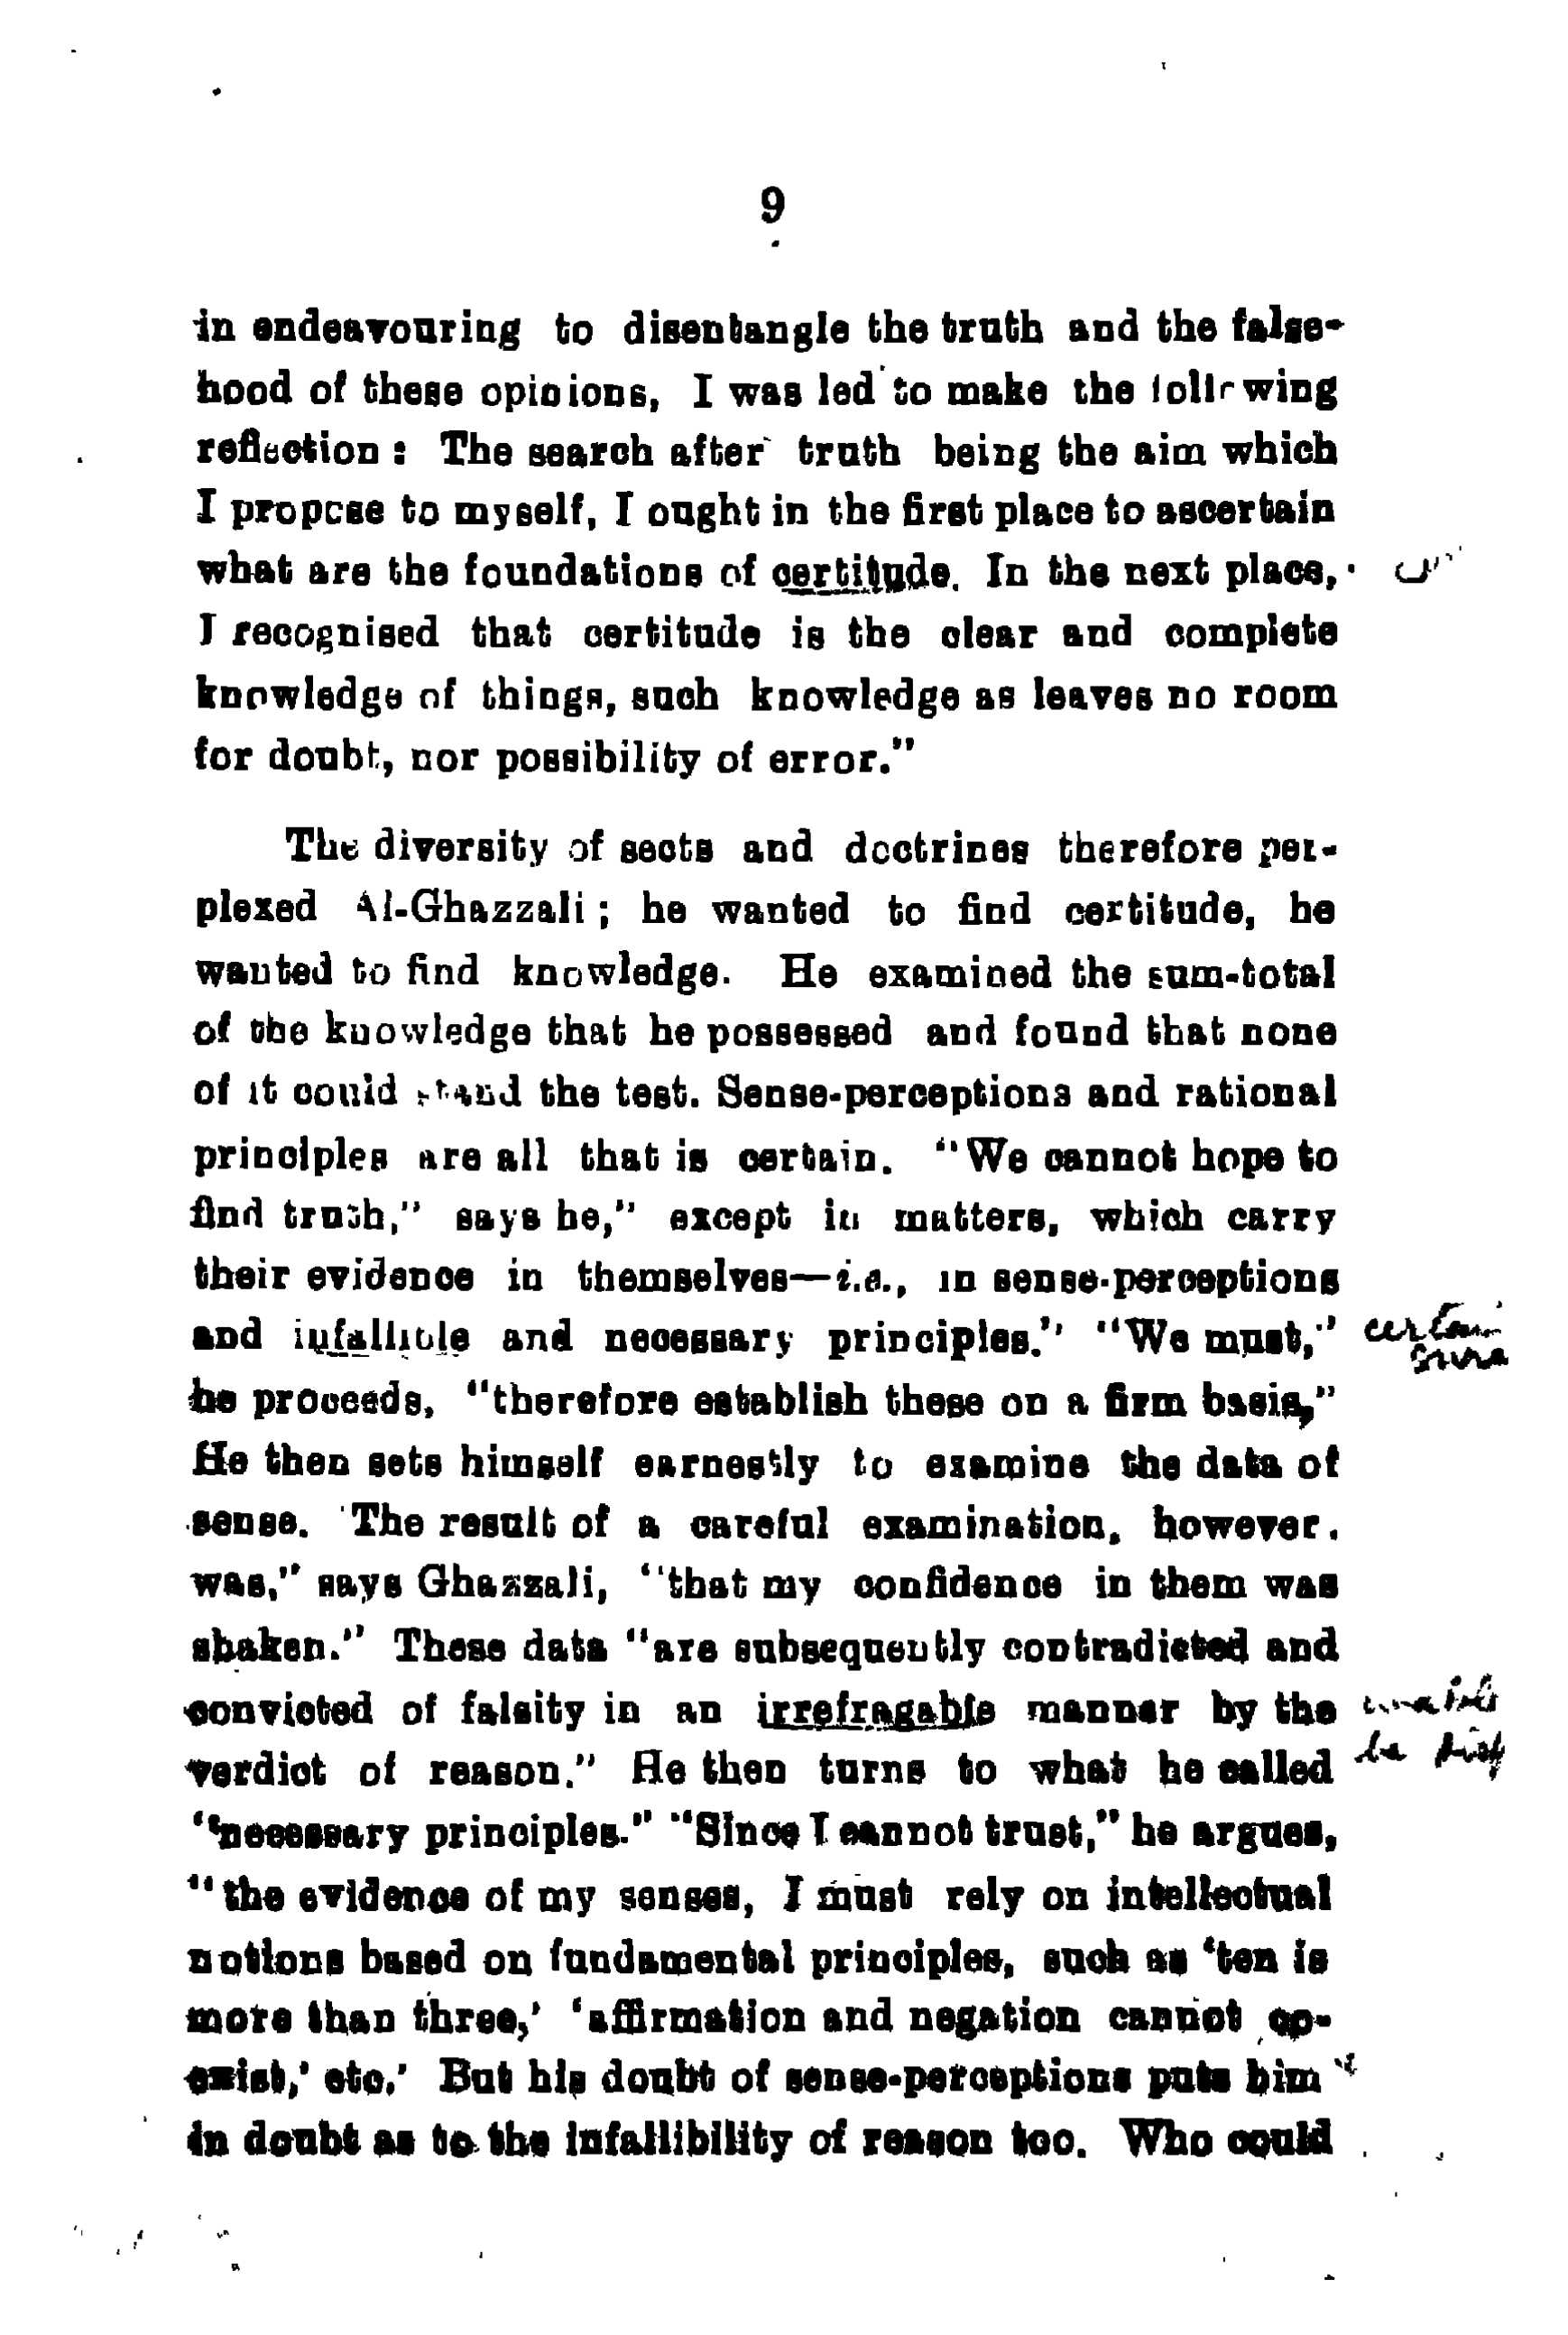 9
in endeavouring to disentangle the truth and the false-
hood of these opinions, I was led to make the following
reflection : The search after truth being the aim which
I propose to myself, I ought in the first place to ascertain
what are the foundations of certitude. In the next place,
I recognised that certitude is the clear and complete
knowledge of things, such knowledge as leaves no room
for doubt, nor possibility of error."
The diversity of sects and doctrines therefore per-
plexed Al-Ghazzali ; he wanted to find certitude, he
wanted to find knowledge. He examined the sum-total
of the knowledge that he possessed and found that none
of it could stand the test. Sense-perceptions and rational
principles are all that is certain. "We cannot hope to
find truth," says he," except in matters, which carry
their evidence in themselves—i.e., in sense-perceptions
and infallible and necessary principles." "We must," certain
he proceeds, "therefore establish these on a firm basis,"
He then sets himself earnestly to examine the data of
sense. The result of a careful examination, however,
was," says Ghazzali, "that my confidence in them was
shaken." These data "are subsequently contradicted and
convicted of falsity in an irrefragable manner by the
verdict of reason." He then turns to what he called
"necessary principles." "Since I cannot trust," he argues,
"the evidence of my senses, I must rely on intellectual
notions based on fundamental principles, such as 'ten is
more than three,' 'affirmation and negation cannot co-
exist,' etc.' But his doubt of sense-perceptions puts him
in doubt as to the infallibility of reason too. Who could